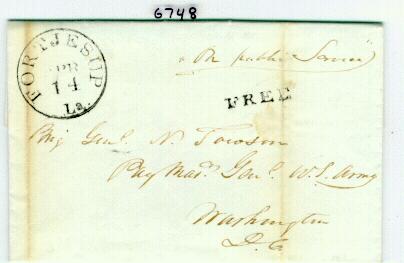 6748
FORT JESUP
APR
14
La.
"On public Service"
FREE
Brig Genl. N. Towson
Pay Mas. Genl. U.S. Army
Washington
D.C.